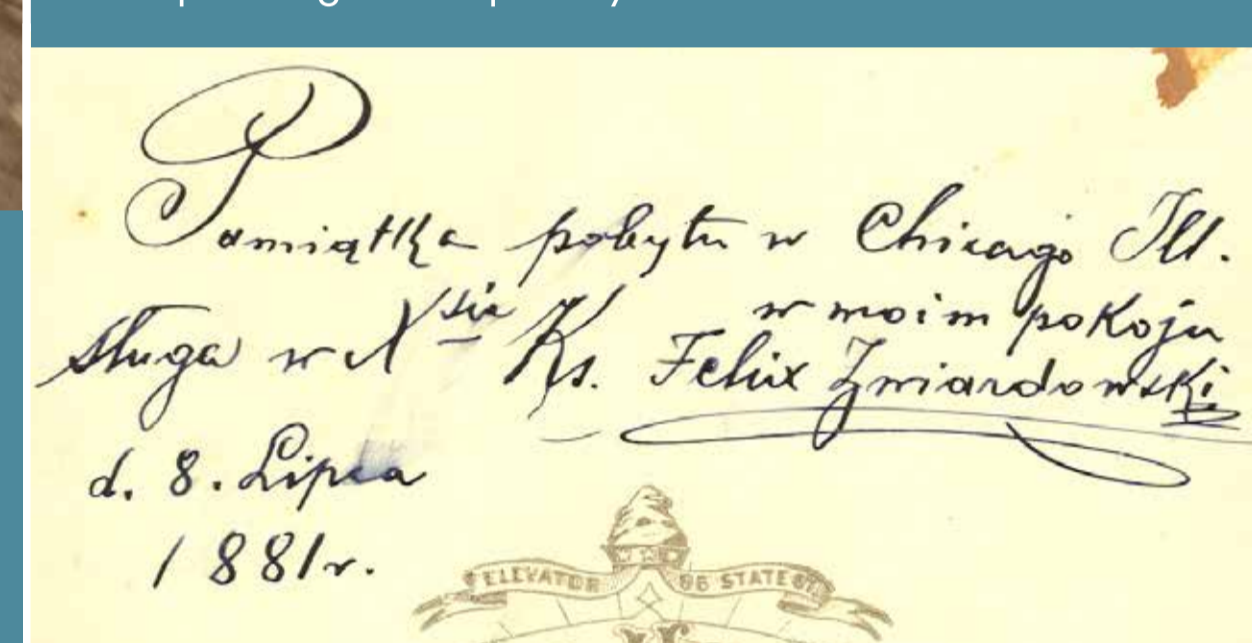 Pamiątka pobytu w Chicago Ill.
w moim pokoju
sługa w Xsie Ks. Felix Zwiardowski
d. 8. Lipca
1881r.
ELEVATOR 96 STATE ST.